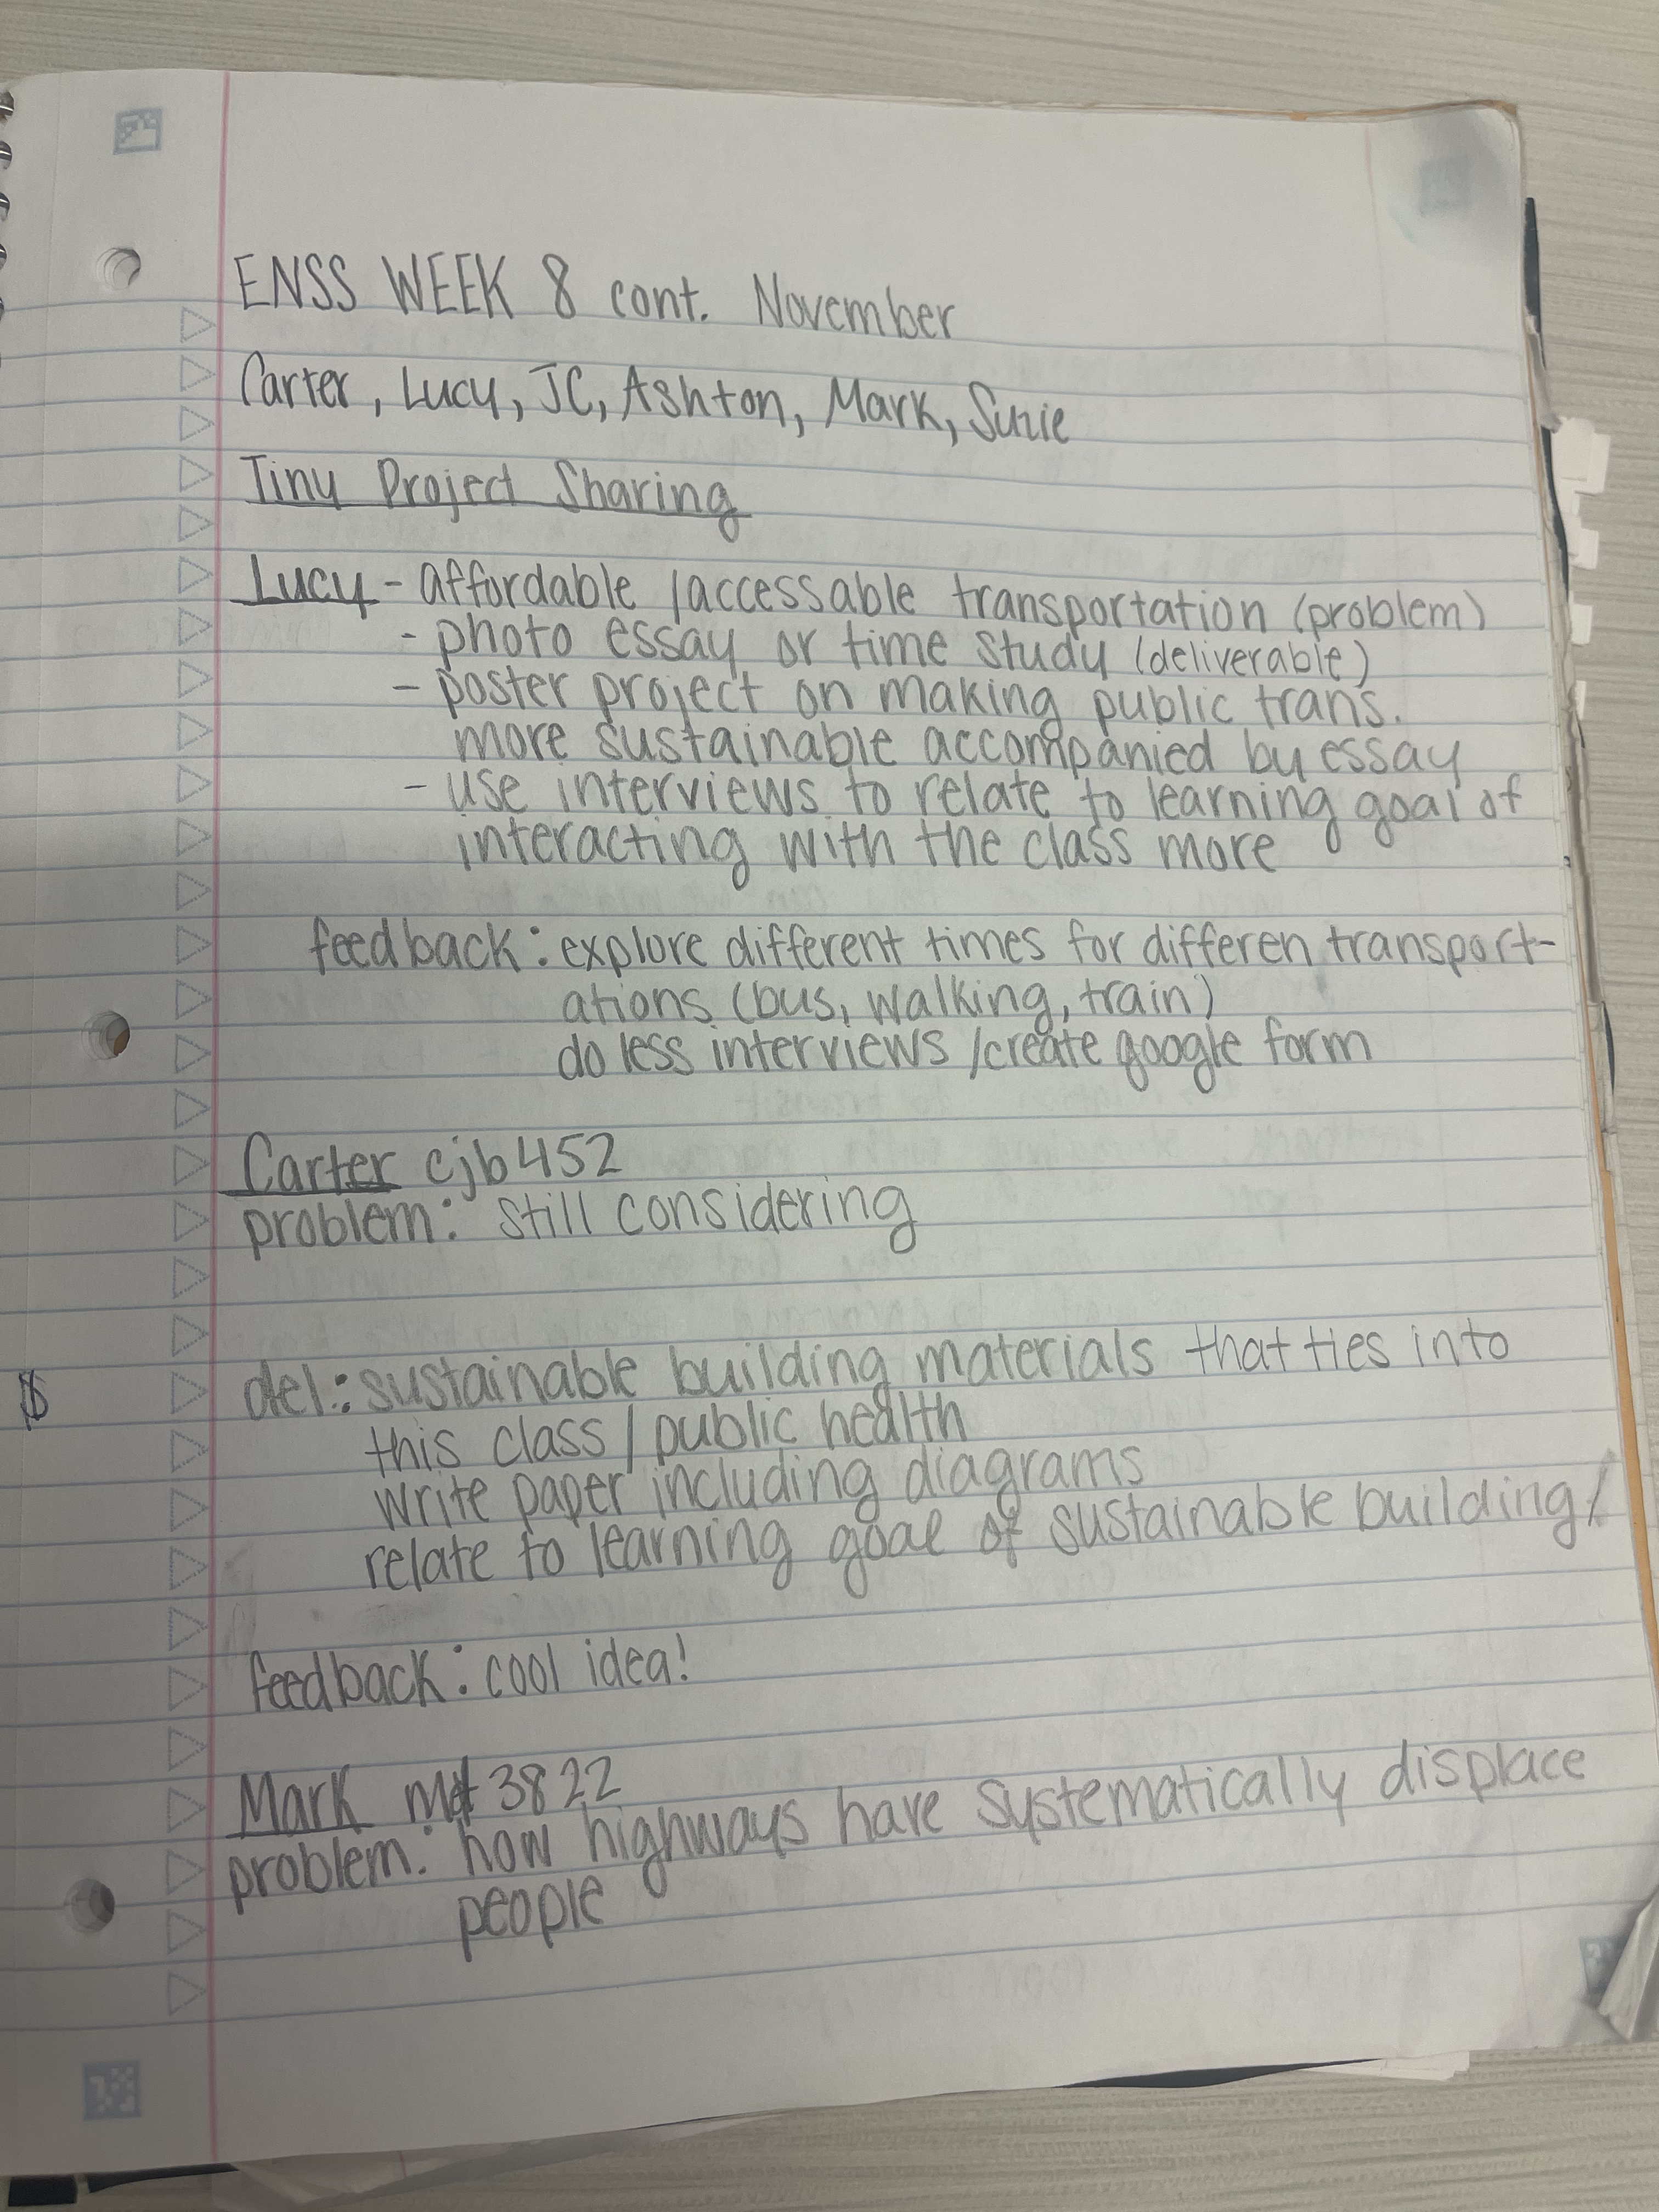 ENSS WEEK 8 cont. November
Carter, Lucy, JC, Ashton, Mark, Suzie
Tiny Project Sharing
Lucy - affordable /accessable transportation (problem)
- photo essay or time study (deliverable)
- poster project on making public trans.
more sustainable accompanied by essay
- use interviews to relate to learning goal of
interacting with the class more
feedback: explore different times for differen transport-
ations (bus, walking, train)
do less interviews /create google form
Carter cjb452
problem: still considering
del.: sustainable building materials that ties into
this class / public health
write paper including diagrams
relate to learning goal of sustainable building/
feedback: cool idea!
Mark 3822
problem: how highways have systematically displace
people